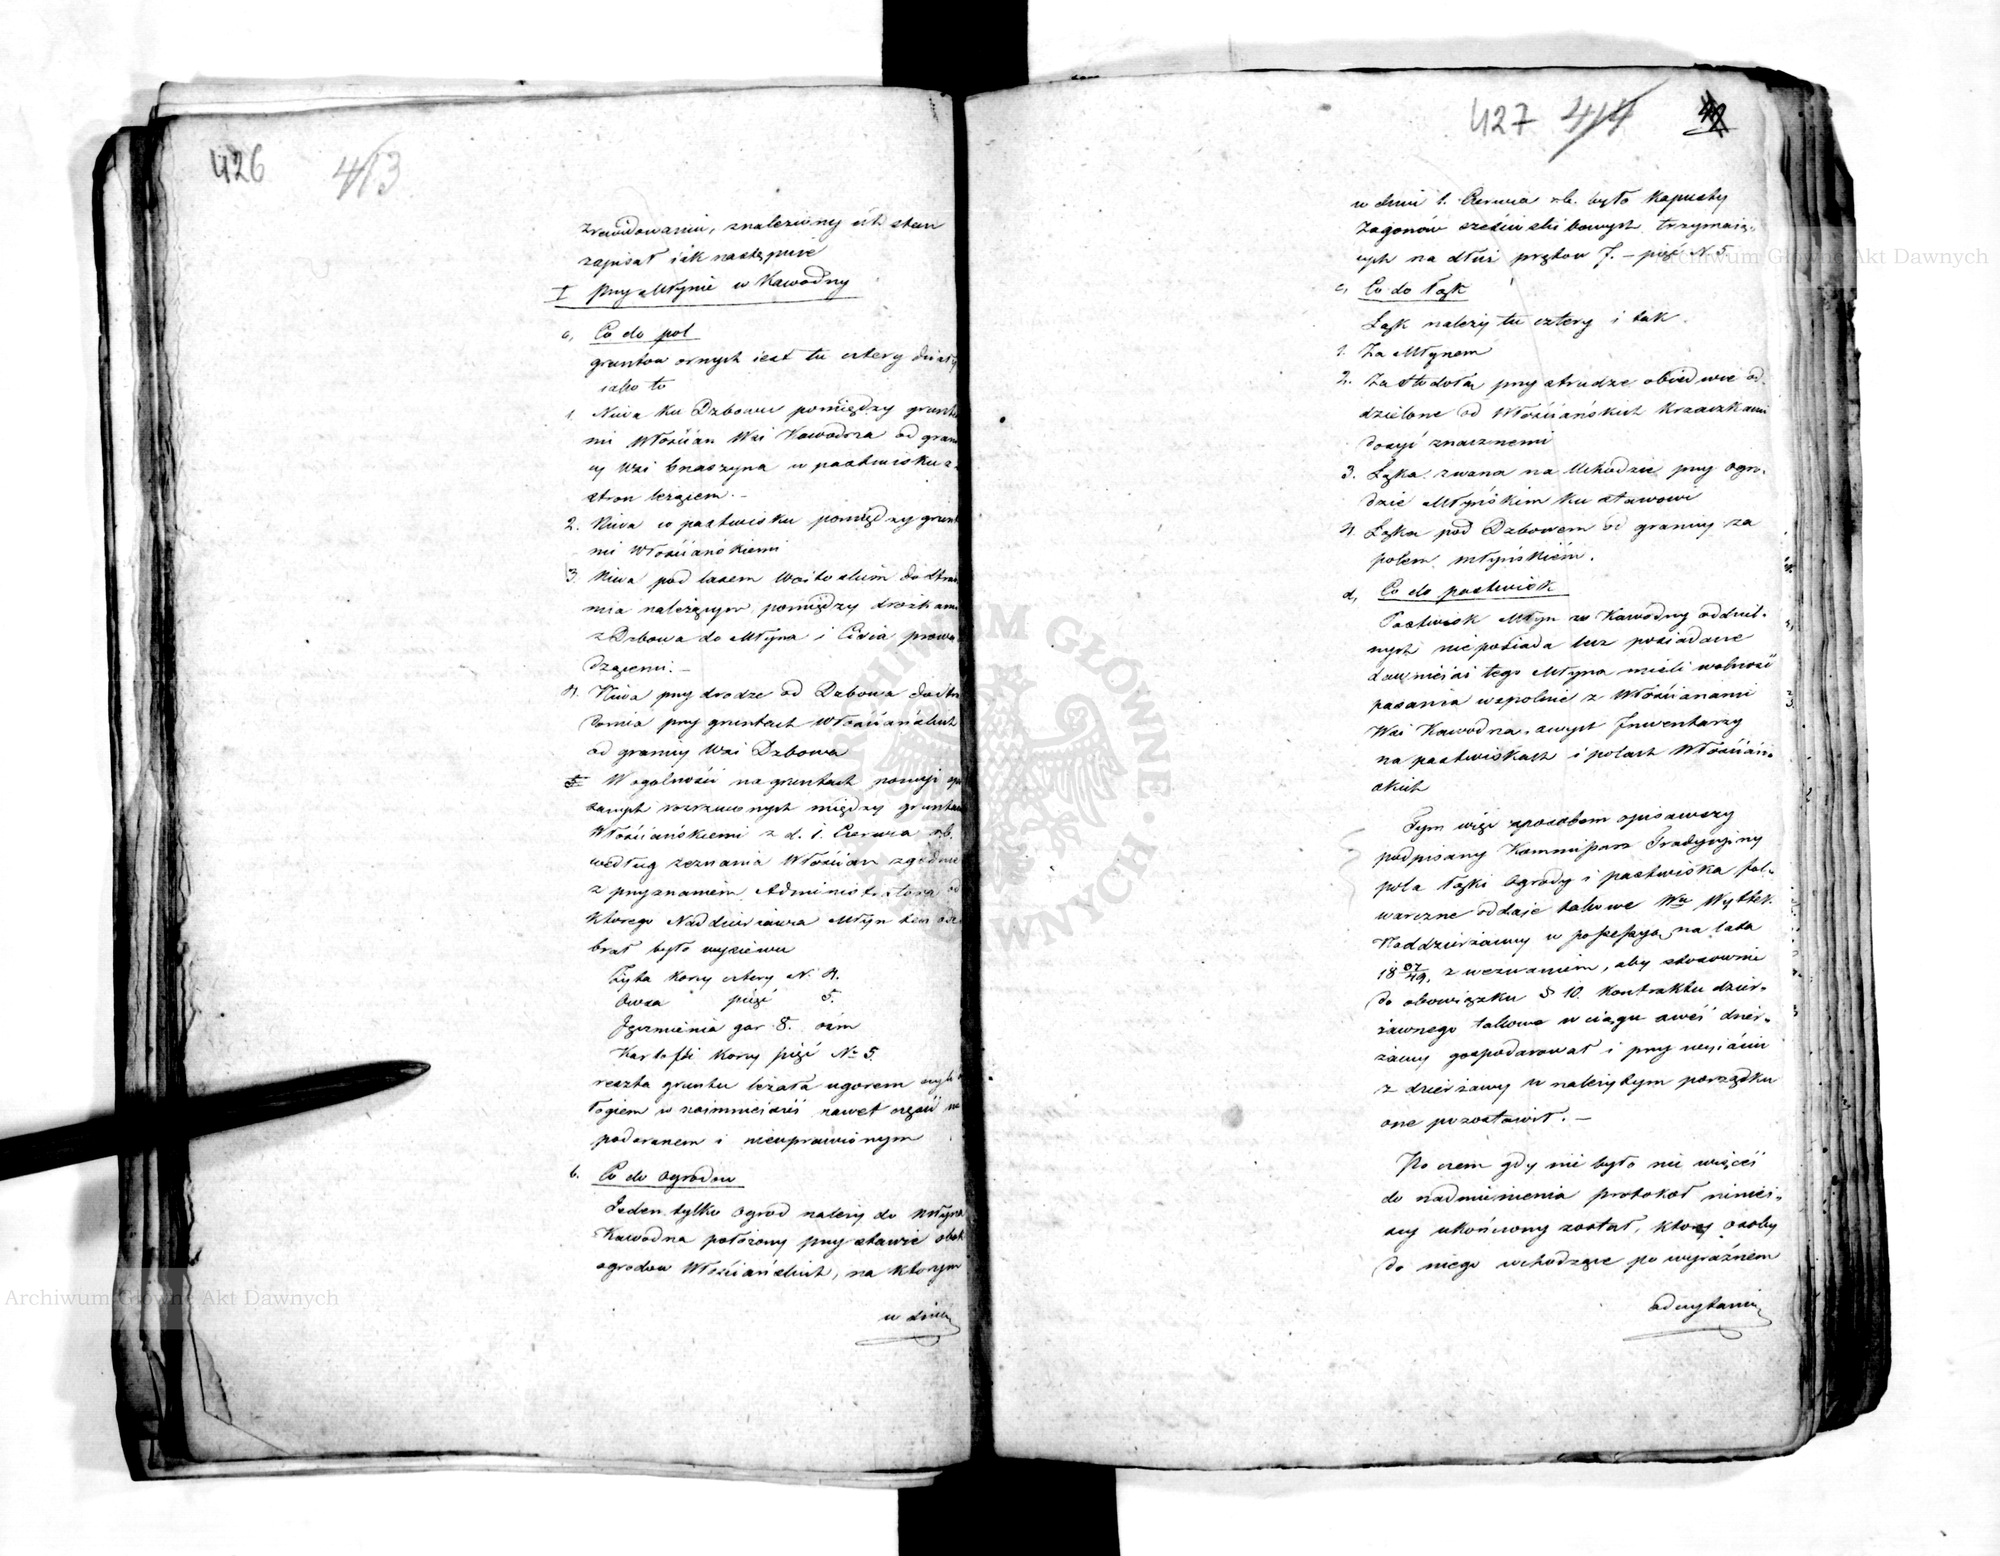 426 413
zrewidowaniu, znaleziony ich stan
zapisał jak następuie
I Przy Młynie w Kawodny
a, Co do pol
gruntow ornych iest tu cztery działy
iako to
1. Niwa ku Dzbowu pomiędzy grunta
mi Włościan Wsi Kawodrza od grani
cy Wsi Gnaszyna w pastwisku z
stron leżącem. –
2. Niwa w pastwisku pomiędzy grunta
mi Włościańskiemi
3. Niwa pod lasem
mia należącym, pomiędzy drożkami
z Dzbowa do Młyna i prowa
dzącemi. –
4. Niwa przy drodze od Dzbowa do
domia przy gruntach Włościańskich
od granicy Wsi Dzbowa
5 W ogolności na gruntach powyżej opi
sanych rozrzuconych między gruntami
Włościańskiemi z d. 1. Czerwca rb.
według zeznania Włościan zgodnie
z przyznaniem Administratora od
ktorego Naddzierżawca Młyn ten ode
brał było wysiewu
Żyta korcy cztery N. 4.
Owsa pięć 5.
Jęczmienia gar. 8. ośm
Kartofli korcy pięć No 5.
reszta gruntu leżała ugorem czyli
łogiem w naimnieiszéi nawet części nie
podoranem i nieuprawionym
b. Co do ogrodow
Jeden tylko ogrod należy do Młyna
Kawodna położony przy stawie obok
ogrodow Włościańskich, na ktorym
w dniu
427 414
w dniu 1. Czerwca rb. było kapusty
zagonów sześcioskibowych trzymaią-
cych na dłuż prętow 7. – pięć N. 5.
c, Co do łąk
Łąk należy tu cztery i tak.
1. Za Młynem
2. Za stodołą przy strudze obiedwie od-
dzielone od Włościańskich krzaczkami
dosyć znacznemi
3. Łąka zwana na Uchodzie przy ogro-
dzie Młyńskim ku stawowi
4. Łąka pod Dzbowem od granicy za
polem młyńskiém.
d, Co do pastwisk
Pastwisk Młyn w Kawodny oddziel-
nych nie posiada lecz posiadacze
dawnieisi tego Młyna mieli wolność
pasania wspolnie z Włościanami
Wsi Kawodrza, swych Inwentarzy
na pastwiskach i polach Włościań-
skich
Tym więc sposobem opisawszy
podpisany Kommissarz Tradycyjny
pola łąki Ogrody i pastwiska fol-
warczne oddaje takowe
Naddzierżawcy w possessyą na lata
18 37/49, z wezwaniem, aby stosownie
do obowiązku § 10. kontraktu dzier-
żawnego takowe w ciągu swéi dzier-
żawy gospodarował i przy wyiściu
z dzierżawy w należytym porządku
one pozostawił. –
Po czem gdy nie było nic więcéi
do nadmienienia protokoł niniei-
szy ukończony został, ktory osoby
do niego wchodzące po wyraźnem
odczytaniu
ARCHIWUM GŁÓWNE AKT DAWNYCH
Archiwum Główne Akt Dawnych
Archiwum Główne Akt Dawnych